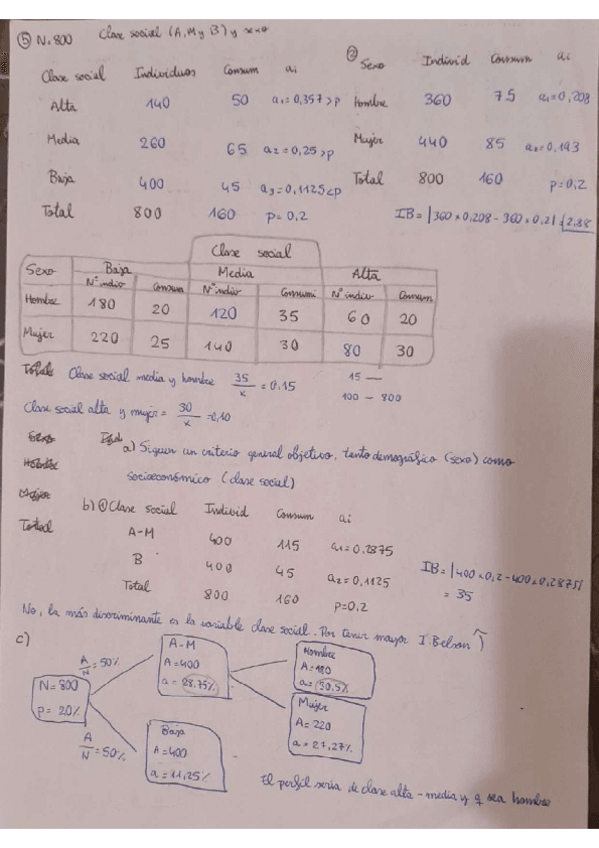 ⑤ N=800 Clase social (A, M y B) y sexo
Clase social Individuos Consum ai
Alta 140 50 a1=0,357>p
Media 260 65 a2=0,25>p
Baja 400 45 a3=0,1125<p
Total 800 160 p=0,2
② Sexo Individ Consum ai
Hombre 360 75 a1=0,208
Mujer 440 85 a2=0,193
Total 800 160 p=0,2
IB=|360×0,208-360×0,2|=2,88
Clase social
Sexo Baja Media Alta
Nº indiv Consum Nº indiv Consumi Nº indiv Consum
Hombre 180 20 120 35 60 20
Mujer 220 25 140 30 80 30
Total Clase social media y hombre 35/x=0,15 15 —
100 - 800
Clase social alta y mujer = 30/x=0,10
Sexo
Hombre
Mujer
Total
a) Siguen un criterio general objetivo, tanto demográfico (sexo) como
socioeconómico (clase social)
b) ① Clase social Individ Consum ai
A-M 400 115 a1=0,2875
B 400 45 a2=0,1125
Total 800 160 p=0,2
IB=|400×0,2-400×0,2875|
=35
No, la más discriminante es la variable clase social. Por tener mayor I. Belson
c)
N=800
p=20%
A/N=50%
A-M
A=400
a=28,75%
A/N=50%
Baja
A=400
a=11,25%
Hombre
A=180
a=30,5%
Mujer
A=220
a=27,27%
El perfil seria de clase alta-media y q sea hombre